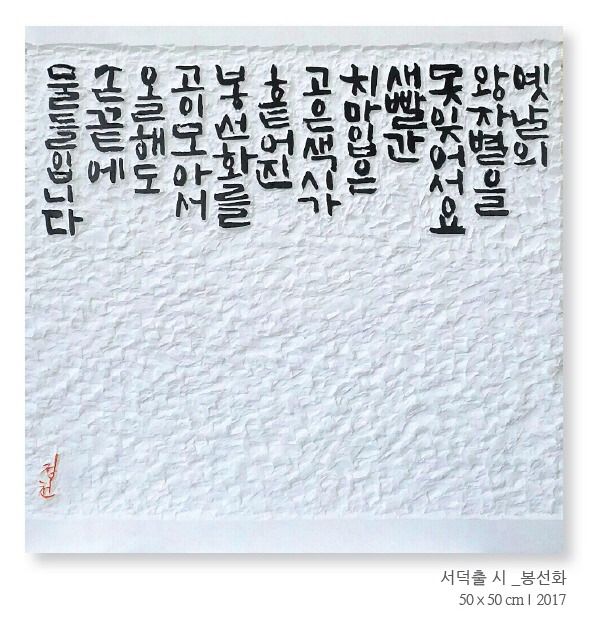 옛날의
왕자별을
못잊어서요
새빨간
치마입은
고은색시가
흩어진
봉선화를
고이모아서
올해도
손끝에
물들입니다
서덕출 시 _봉선화
50 x 50 cm I 2017